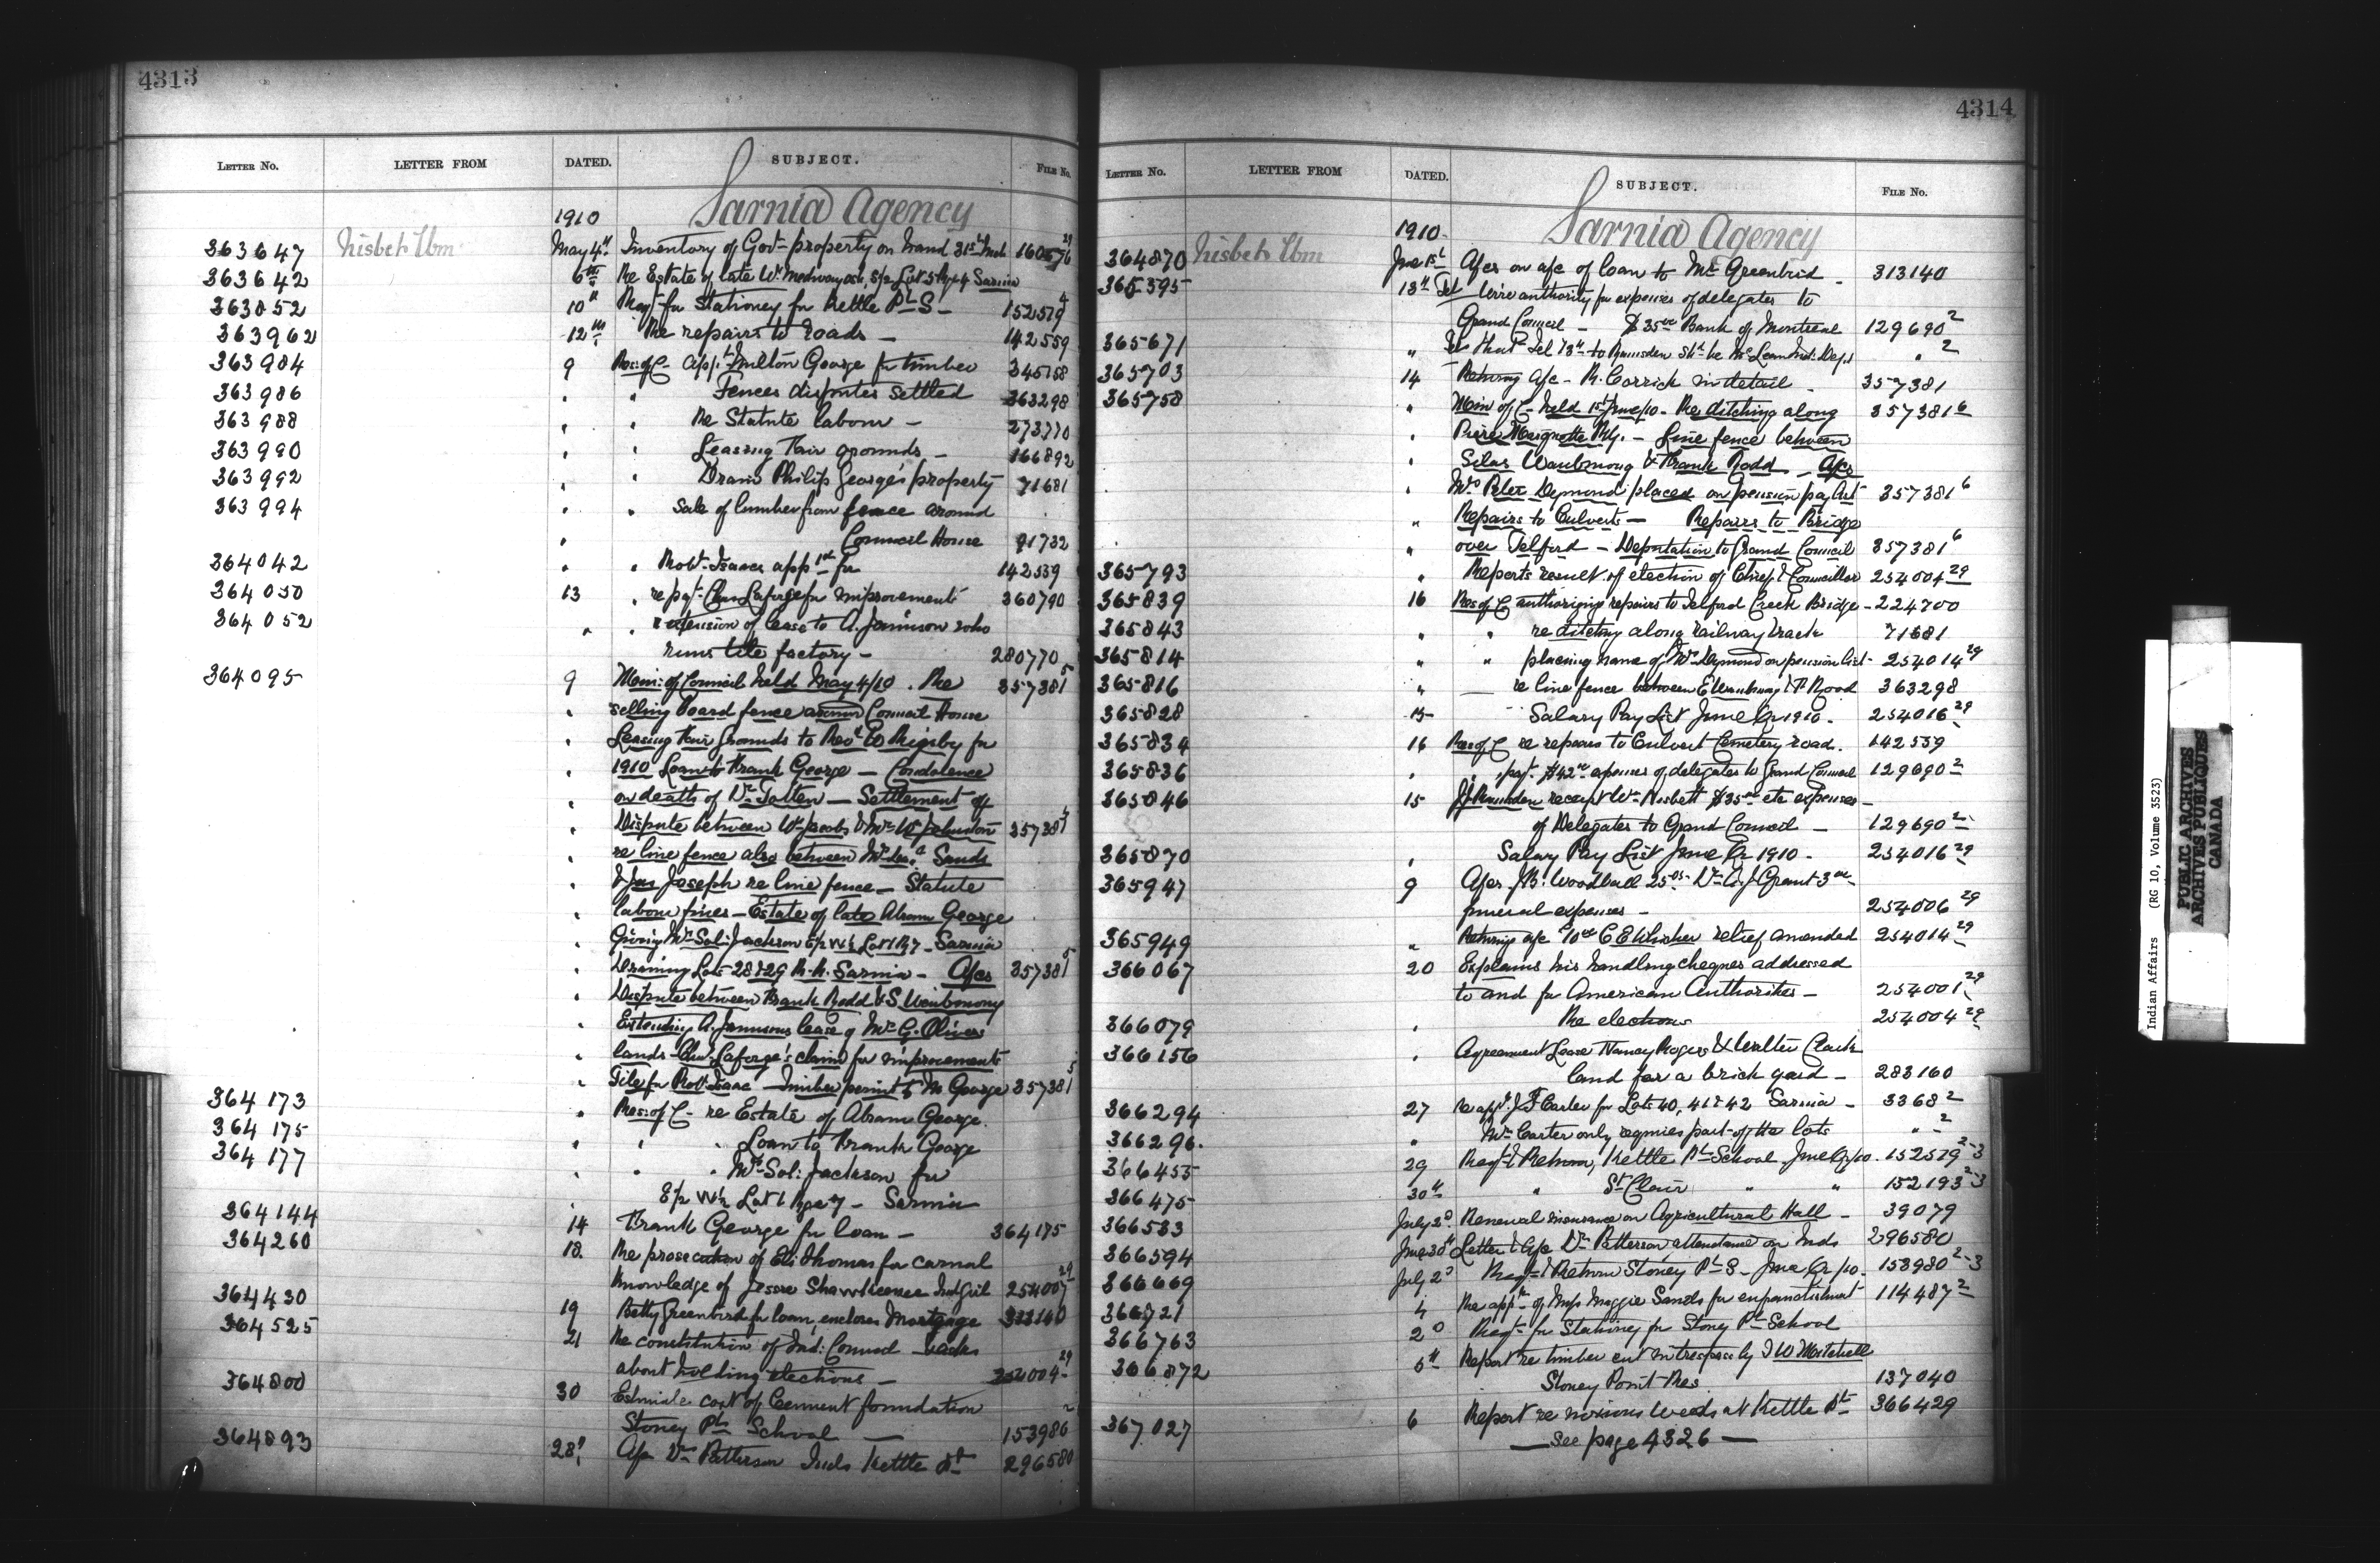 4313
LETTER No. LETTER FROM DATED. SUBJECT. FILE No.
Sarnia Agency
1910
363647 Nisbet Wm May 4th Inventory of Govt property on hand 31st Mch 160576 29
363642 6th Re Estate of late Wm Sarnia
363852 10th Reqt for Stationery for Kettle Pt S - 152519 4
363962 12th Re repairs to roads - 142559
363984 9 Res: of C - appt Milton George for timber 345158
363986 " " Fences disputes settled 363298
363988 " " Re Statute labour - 273770
363990 " " Leasing Fair grounds - 166892
363992 " " Drain Philip George's property 71681
363994 " " Sale of lumber from fence around
" Council House 91732
364042 " " Robt Isaacs appt for 142559
364050 13 " re payt Chas Laforge for improvements 360790
364052 " " extension of lease to A. Jamison who
runs tile factory - 280770
364095 9 Min: of Council held May 4/10. Re 357381 5
" selling board fence around Council House
" Leasing Fair Grounds to Revd E Rigsby for
" 1910 Loan to Frank George - Condolence
" on death of Dr. Totten - Settlement of
" Dispute between Wm Jacobs & Mrs Wm Johnston 357381 5
" re line fence also between Sands
" & Jas Joseph re line fence - Statute
" labour fines - Estate of late Abram George
" Giving Mrs Sol: Jackson E½ W½ Lot 1 R 7 - Sarnia
" Draining Lots 28 & 29 R.R. Sarnia - A/cs 357381 5
" Dispute between Frank Rodd & S. Waubmong
" Extending A. Jamisons lease of Mrs G. Olivers
" lands - Chas. Laforge's claim for improvements
" Tile for Robt Isaac - Timber permit to M. George 357381 5
364173 " Res: of C - re Estate of Abram George
364175 " " " Loan to Frank George
364177 " " " Mrs Sol: Jackson for
" E½ W½ Lot 1 Rge 7 - Sarnia
364144 14 Frank George for loan - 364175
364260 18. Re prosecution of Eli Thomas for carnal
knowledge of Jessie Shawkeence Ind Girl 254007 29
364430 19 Betty Greenbird for loan, encloses Mortgage 313140
364525 21 Re constitution of Ind: Council - asks
about holding elections - 254004 29
364800 30 Estimate cost of Cement foundation
Stoney Pt School - 153986 2
364893 28th A/c Dr Patterson Inds Kettle Pt 296580
4314
LETTER No. LETTER FROM DATED. SUBJECT. FILE No.
Sarnia Agency
1910 -
364870 Nisbet Wm June 1st A/cs on a/c of loan to Mrs Greenbird - 313140
365395 13th Tel Wire authority for expenses of delegates to
Grand Council - $35.00 Bank of Montreal 129690 2
365671 " Tel 13th to Ramsden shd be McLean Ind: Dept " 2
365703 14 Returns a/c - R. Corrick in detail - 357381
365758 " Min of C - held 1st June/10 - Re ditching along
357381 6
" Père Marquette Rly. - Line fence between
" Silas Waubmong & Frank Rodd - A/cs
" Mrs Peter Dymond placed on pension pay list 357381 6
" Repairs to Culverts - Repairs to Bridge
" over Telford - Deputation to Grand Council 357381 6
365793 " Reports result of election of Chief & Councillors 254004 29
365839 16 Res of C authorizing repairs to Telford Creek Bridge - 224700
365843 " " re ditching along railway track 71681
365814 " " placing name of Mrs Dymond on pension list - 254014 29
365816 " - re line fence between & F. Rodd 363298
365828 15 Salary Pay List June Qr 1910 - 254016 29
365834 16 Res of C re repairs to Culvert Cemetery road. 142559
365836 " " payt $42.00 expenses of delegates to Grand Council 129690 2
365846 15 J.J. Ramsden receipt Wm Nisbett $35.00 etc expenses -
of Delegates to Grand Council - 129690 2
365870 " Salary Pay List June Qr 1910 - 254016 29
365947 9 A/cs J.B. Woodhall 25.05 - Dr A.J. Grant 3.00 -
funeral expenses - 254006 29
365949 " Returns a/c 10.00 C E Whicher relief amended 254014 29
366067 20 Explains his handling cheques addressed
to and for American Authorities - 254001 29
366079 " Re elections 254004 29
366156 " Agreement Lease Nancy Rogers & Walter Clark
land for a brick yard - 283160
366294 27 re appt J.F. Carter for Lots 40, 41 & 42 Sarnia - 3368 2
366296. " Mr Carter only requires part of the lots " 2
366455 29 Reqt & Return, Kettle Pt School June Qr/10. 152519 2-3
366475 30th " St Clair " " 152193 2-3
366583 July 2d. Renewal insurance on Agricultural Hall - 39079
366594 June 30th Letter & A/c Dr Patterson attendance on Inds 296580
366669 July 2d Reqt & Return Stoney Pt S - June Qr/10 - 153980 2-3
366721 4 Re appn of Miss Maggie Sands for enfranchisement 114487 2
366763 2d Reqt for Stationery for Stoney Pt School
366872 5th Report re timber cut in trespass by J W Mitchell
Stoney Point Res 137040
367027 6 Report re noxious weeds at Kettle Pt 366429
- See page 4326 -
Indian Affairs (RG 10, Volume 3523)
PUBLIC ARCHIVES
ARCHIVES PUBLIQUES
CANADA